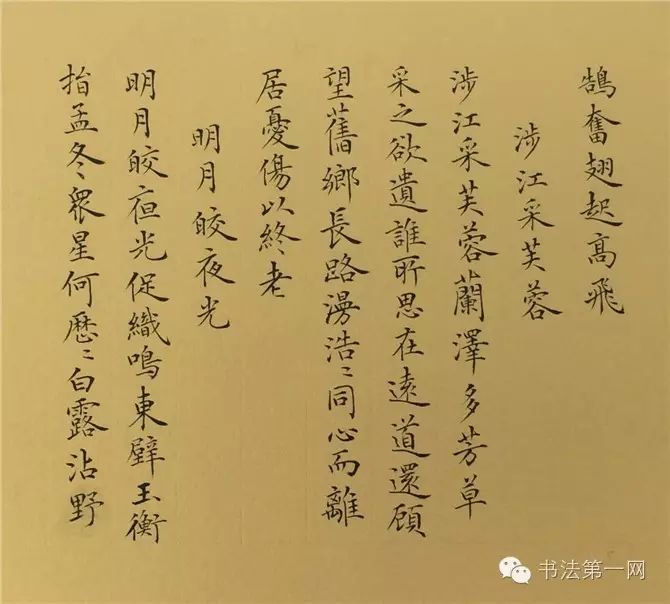 鵠奮翅起高飛
涉江采芙蓉
涉江采芙蓉蘭澤多芳草
采之欲遺誰所思在遠道還顧
望舊鄉長路漫浩〻同心而離
居憂傷以終老
明月皎夜光
明月皎夜光促織鳴東壁玉衡
指孟冬〻眾星何歷〻白露沾野
书法第一网